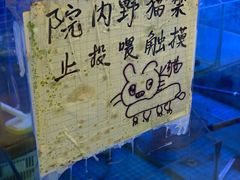 院内野猫禁
止投喂触摸